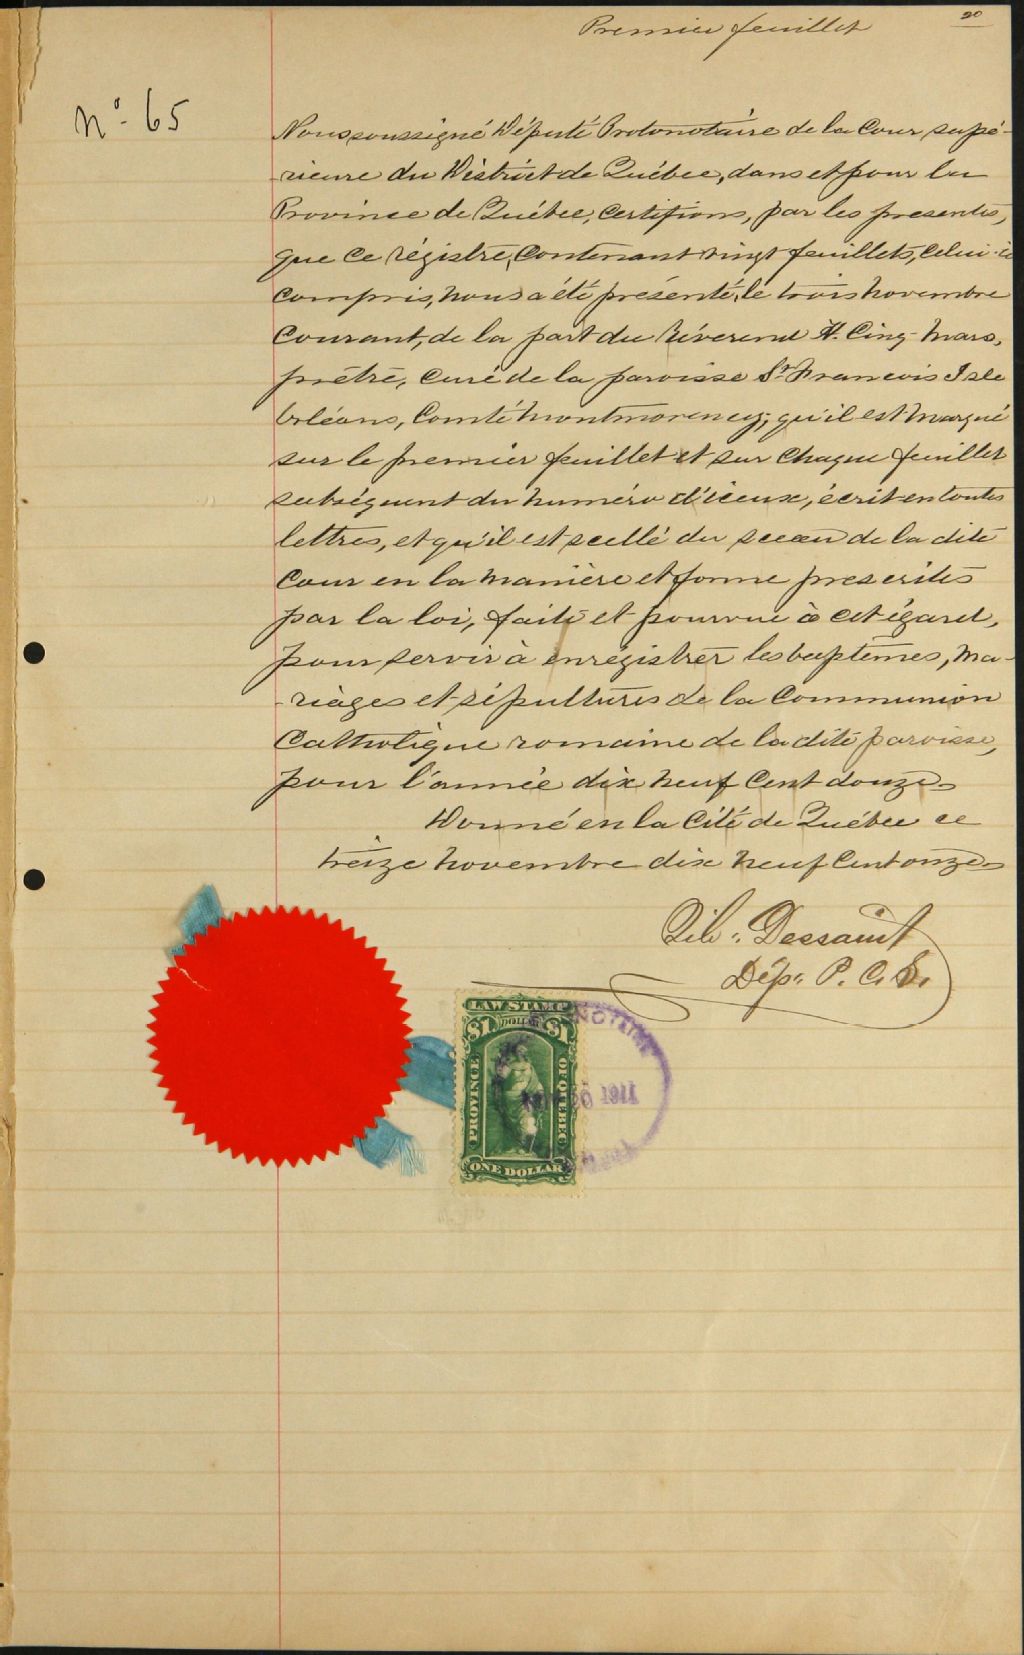 20
Premier feuillet
No. 65
Nous soussigné Député Protonotaire de la Cour supé-
rieure du District de Québec, dans et pour la
Province de Québec, certifions, par les presentes,
que ce régistre, contenant vingt feuillets, celui-ci
compris, nous a été présenté, le trois novembre
courant, de la part du Révérend H. Cinq-Mars,
prêtre, curé de la paroisse St. Francois Isle
Orléans, Comté Montmorency; qu'il est marqué
sur le premier feuillet et sur chaque feuillet
subséquent du numéro d'iceux, écrit en toutes
lettres, et qu'il est scellé du sceau de la dite
Cour en la manière et forme prescrites
par la loi, faite et pourvue à cet égard,
pour servir à enrégistrer les baptêmes, ma-
riages et sépultures de la Communion
Catholique romaine de la dite paroisse,
pour l'année dix neuf cent douze.
Donné en la Cité de Québec ce
treize novembre dix neuf cent onze.
Dessaint
Dép. P. C. S.
LAW STAMP
$1 DOLLAR $1
PROVINCE OF QUEBEC
ONE DOLLAR
1911